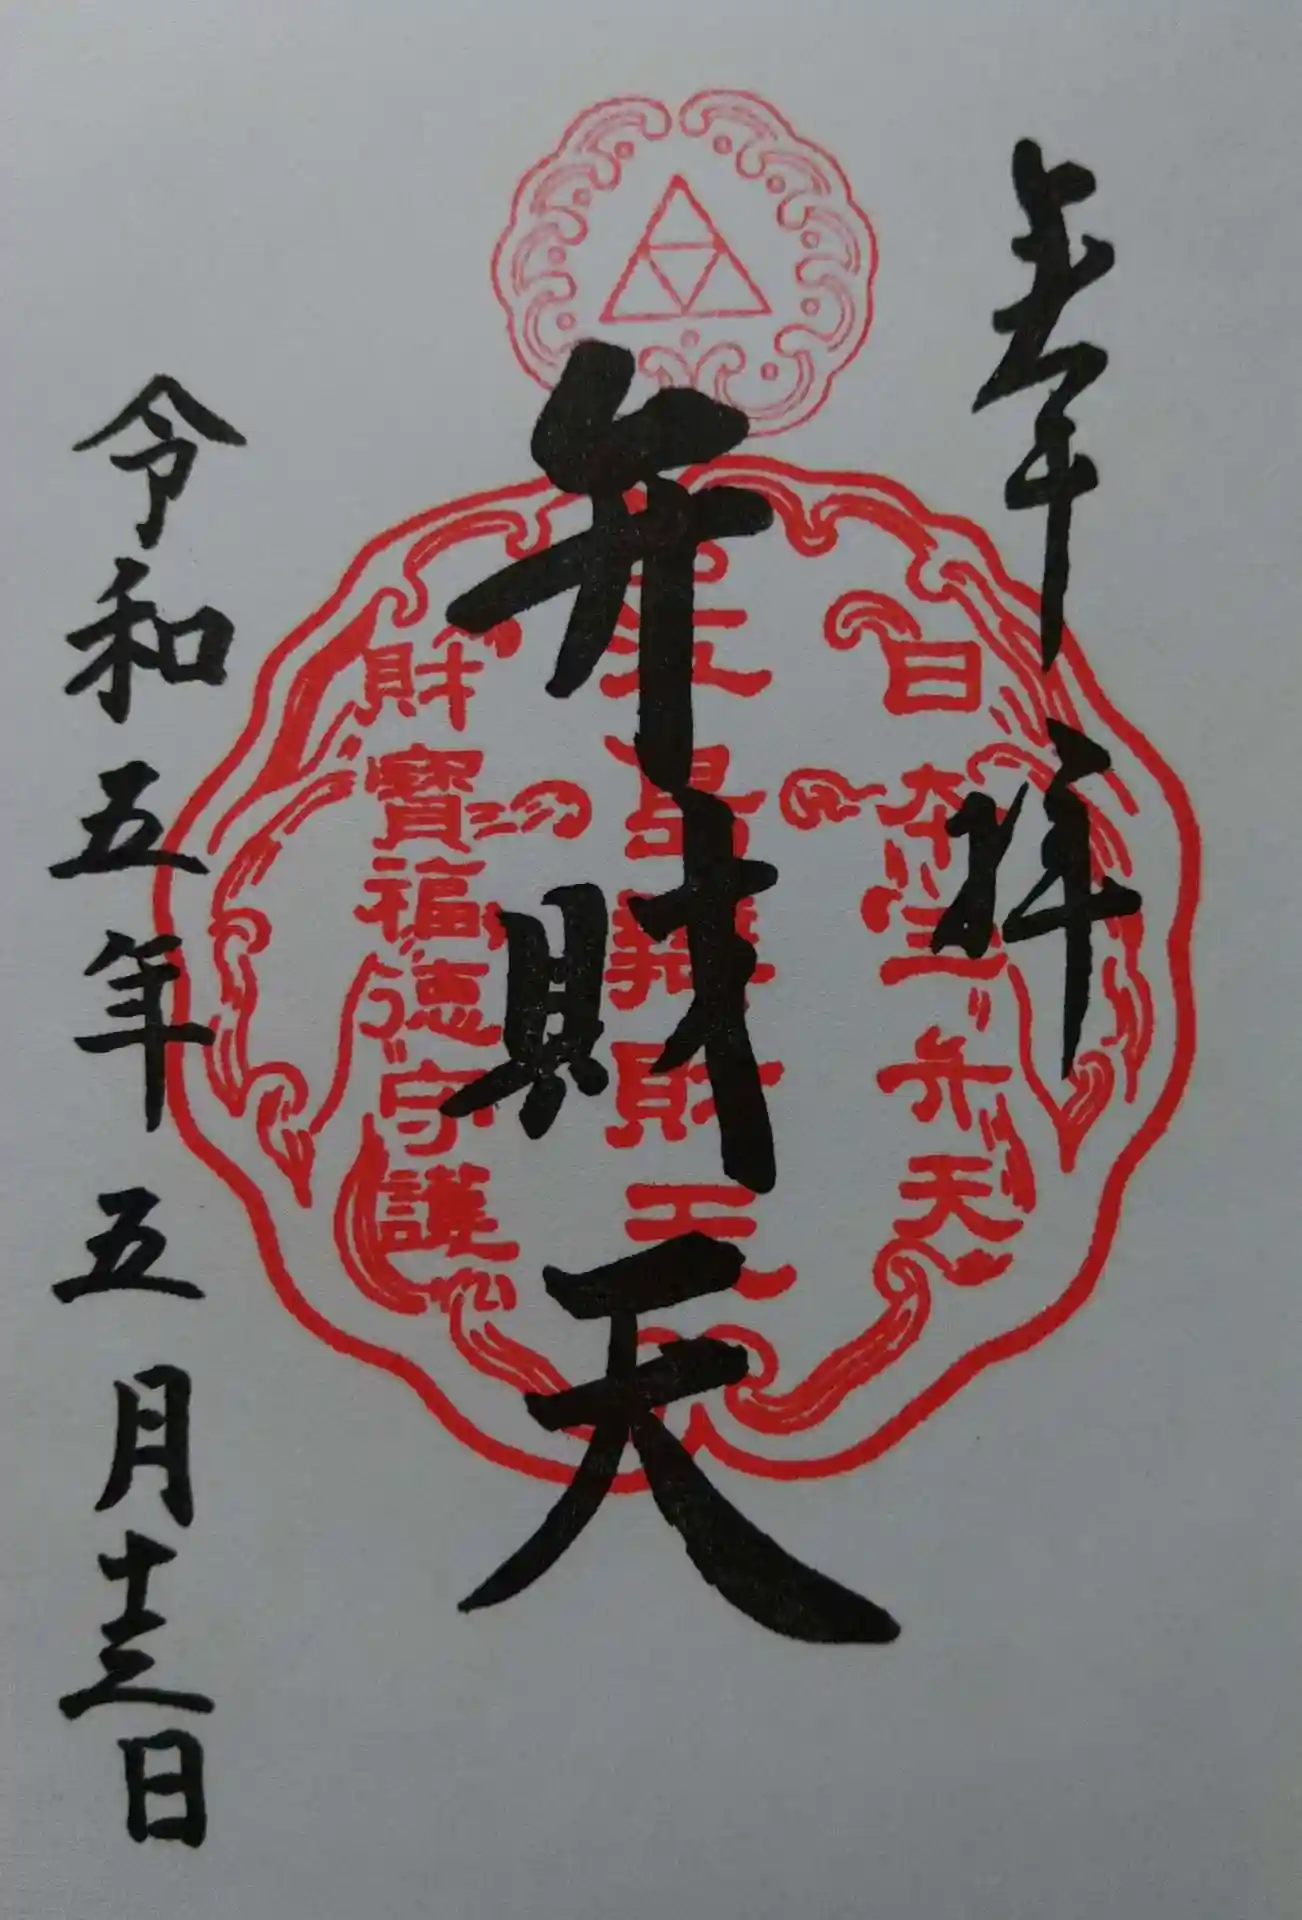 奉拝
日本三弁天
江島辨財天
弁財天
財寶福徳守護
令和五年五月十三日